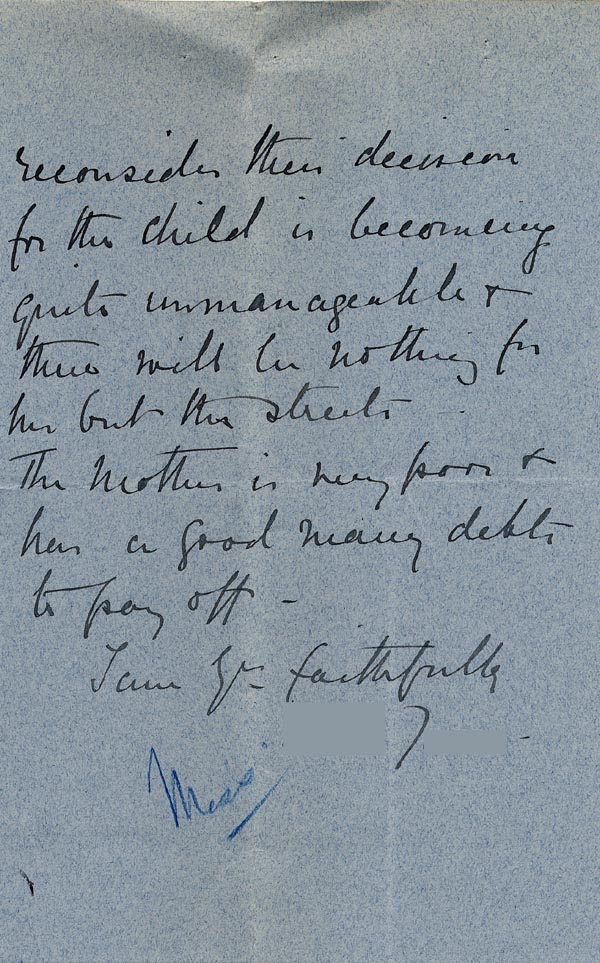 reconsider their decision
for the child is becoming
quite unmanageable &
there will be nothing for
her but the streets
The Mother is very poor &
has a good many debts
to pay off –
I am Yrs faithfully
Miss